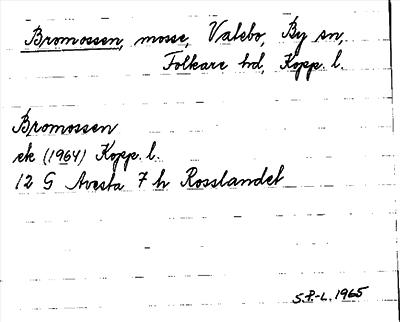 Bromossen, mosse, Valebo, By sn,
Folkare hd, Kopp. l.
Bromossen
ek (1964) Kopp. l.
12 G Avesta 7 h Rosslandet
S.P.-L. 1965